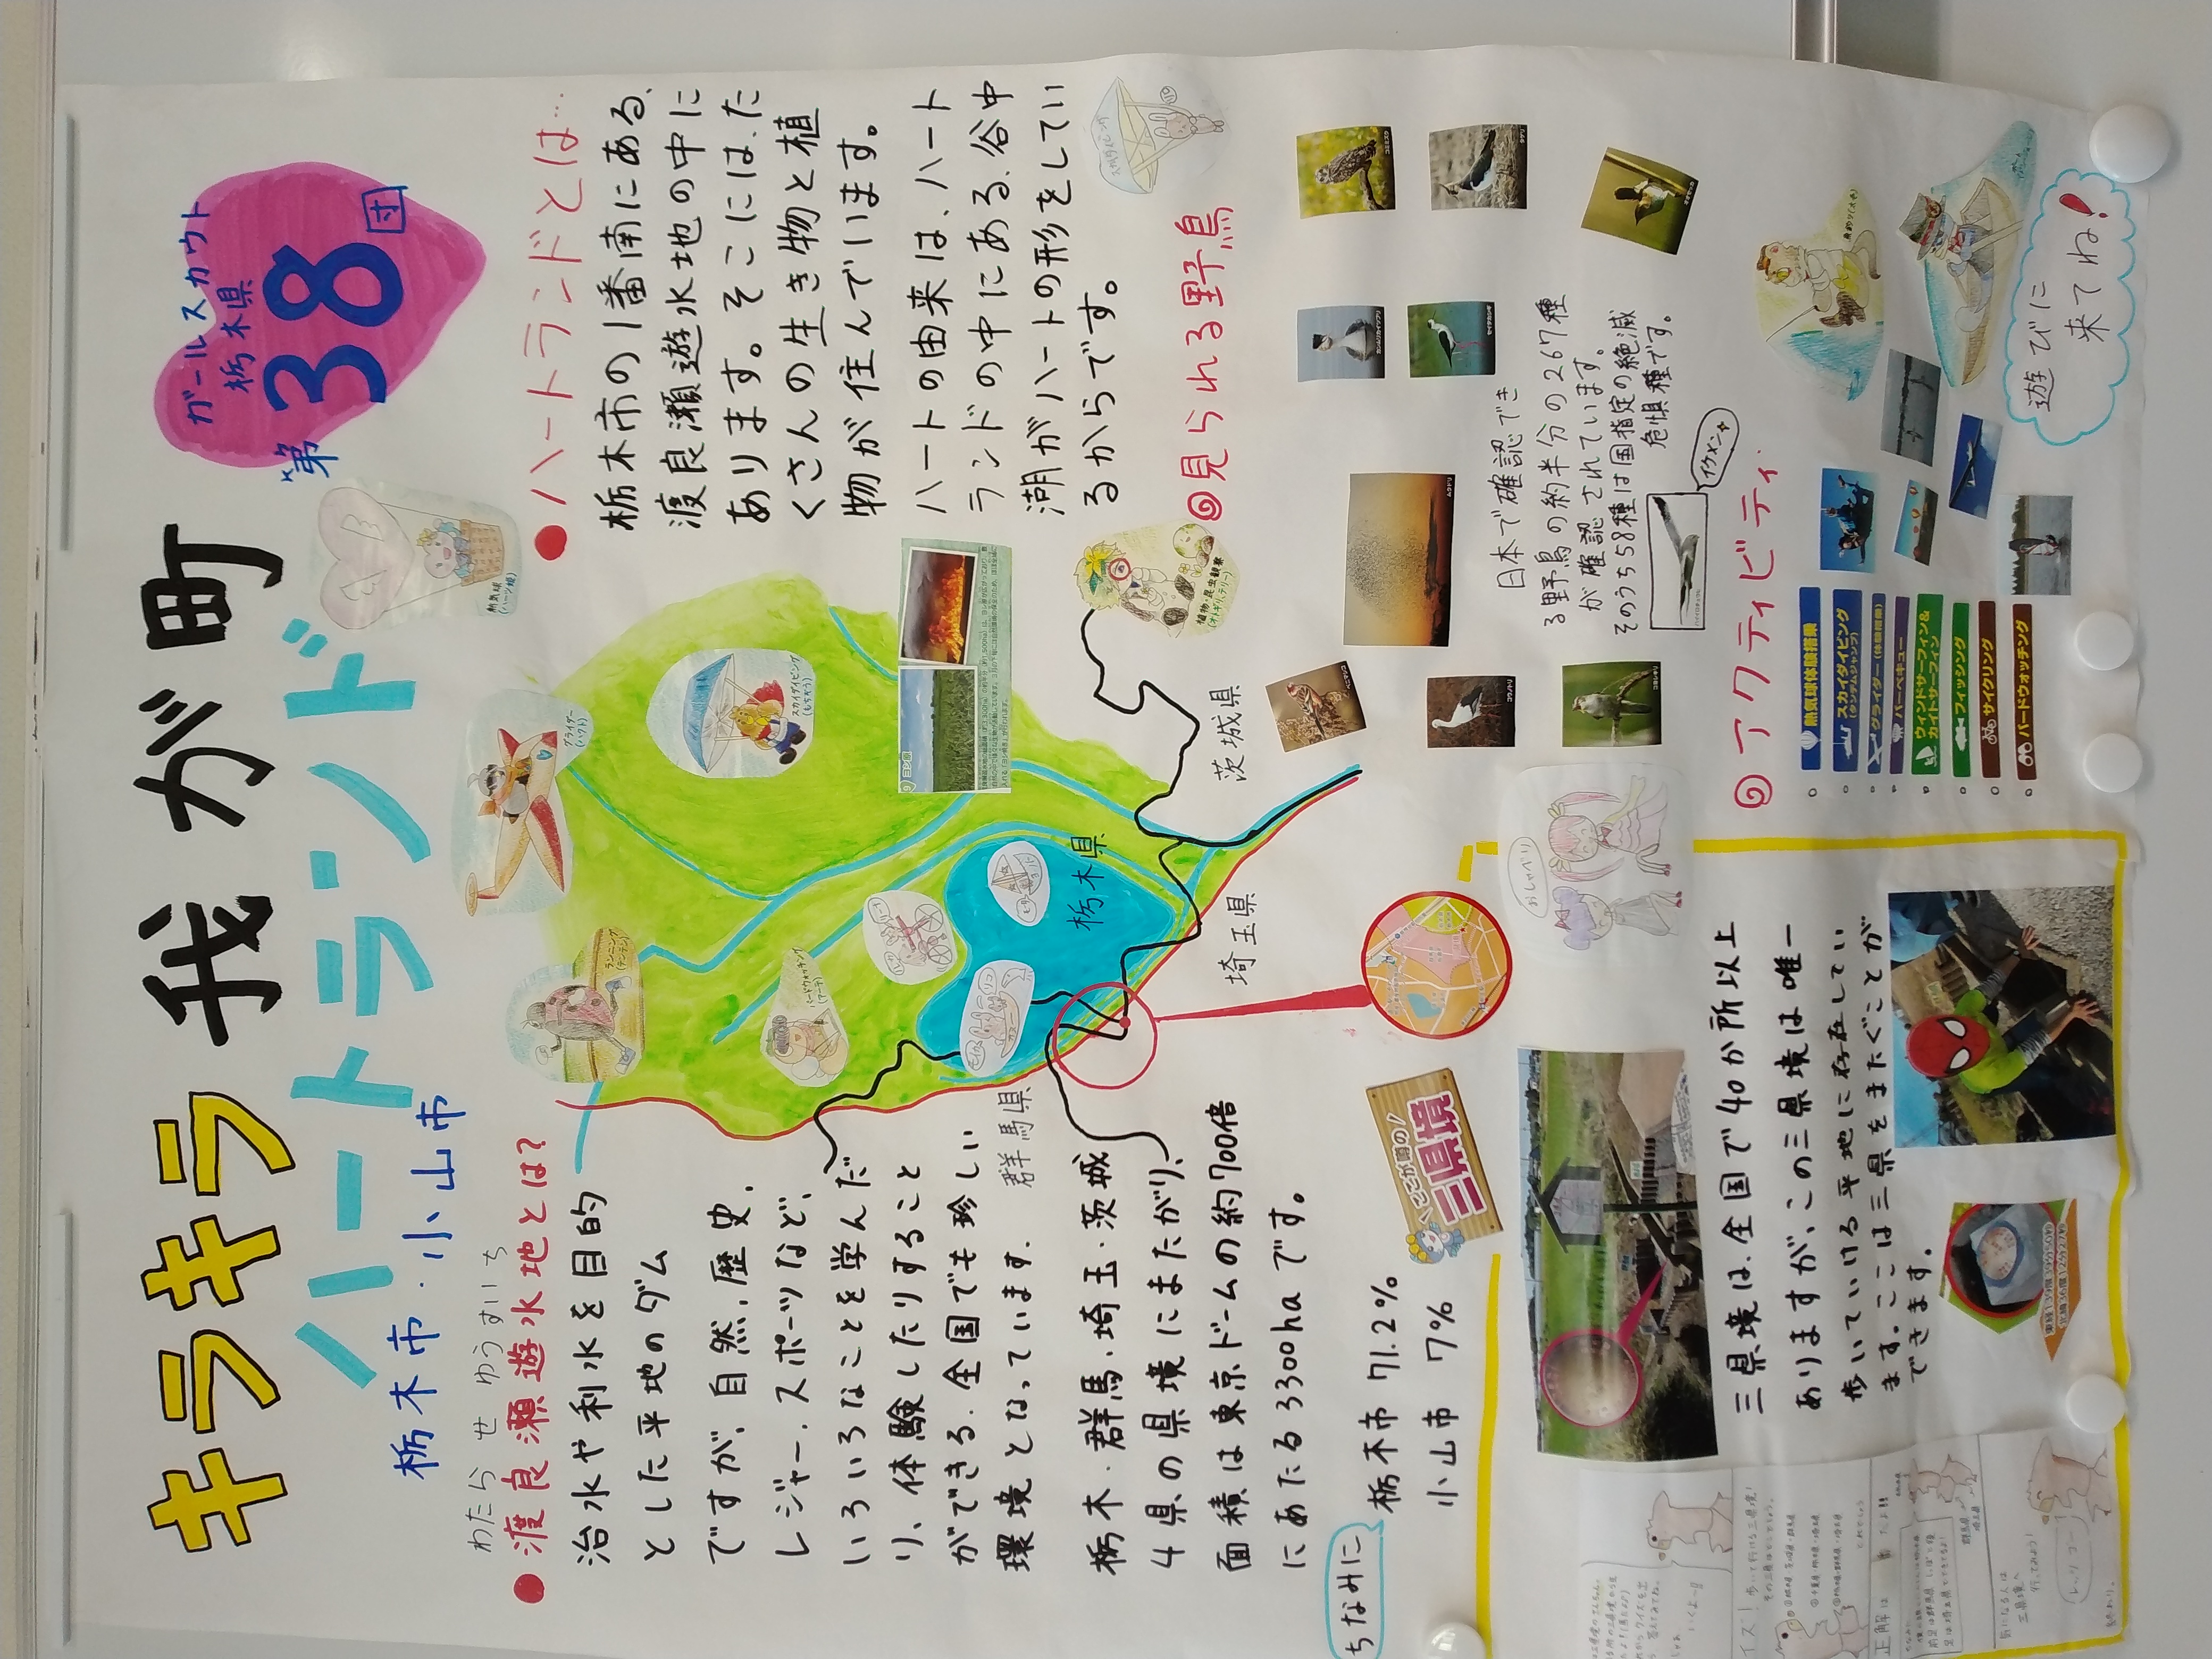 キラキラ 我が町
ハートランド
栃木市・小山市
ガールスカウト
栃木県
第38団
わたらせ ゆうすいち
●渡良瀬遊水地とは?
治水や利水を目的
とした平地のダム
ですが、自然、歴史、
レジャー、スポーツなど、
いろいろなことを学んだ
り、体験したりすること
ができる、全国でも珍しい
環境となっています。
栃木・群馬・埼玉・茨城
4県の県境にまたがり、
面積は東京ドームの約700倍
にあたる3300haです。
ちなみに
栃木市 71.2%
小山市 7%
熱気球
グライダー
(ハクト)
ランニング
スカイダイビング
(もちぞう)
バードウォッチング
(アーチ)
ヨシ原
植物・昆虫観察
群馬県
栃木県
埼玉県
茨城県
●ハートランドとは…
栃木市の1番南にある、
渡良瀬遊水地の中に
あります。そこには、た
くさんの生き物と植
物が住んでいます。
ハートの由来は、ハート
ランドの中にある、谷中
湖がハートの形をしてい
るからです。
スカイダイビング
見られる野鳥
コミミズク
タゲリ
カンムリカイツブリ
セイタカシギ
ムクドリ
ベニマシコ
コウノトリ
日本で確認でき
る野鳥の約半分の267種
が確認されています。
そのうち58種は国指定の絶滅
危惧種です。
イケメン
アクティビティ
熱気球体験搭乗
スカイダイビング
(タンデムジャンプ)
グライダー(体験搭乗)
バーベキュー
ウィンドサーフィン&
カイトサーフィン
フィッシング
サイクリング
バードウォッチング
遊びに
来てね!
おしゃべり
ここが噂の
三県境
三県境は、全国で40か所以上
ありますが、この三県境は唯一
歩いていける平地に存在してい
ます。ここは三県をまたぐことが
できます。
正解は